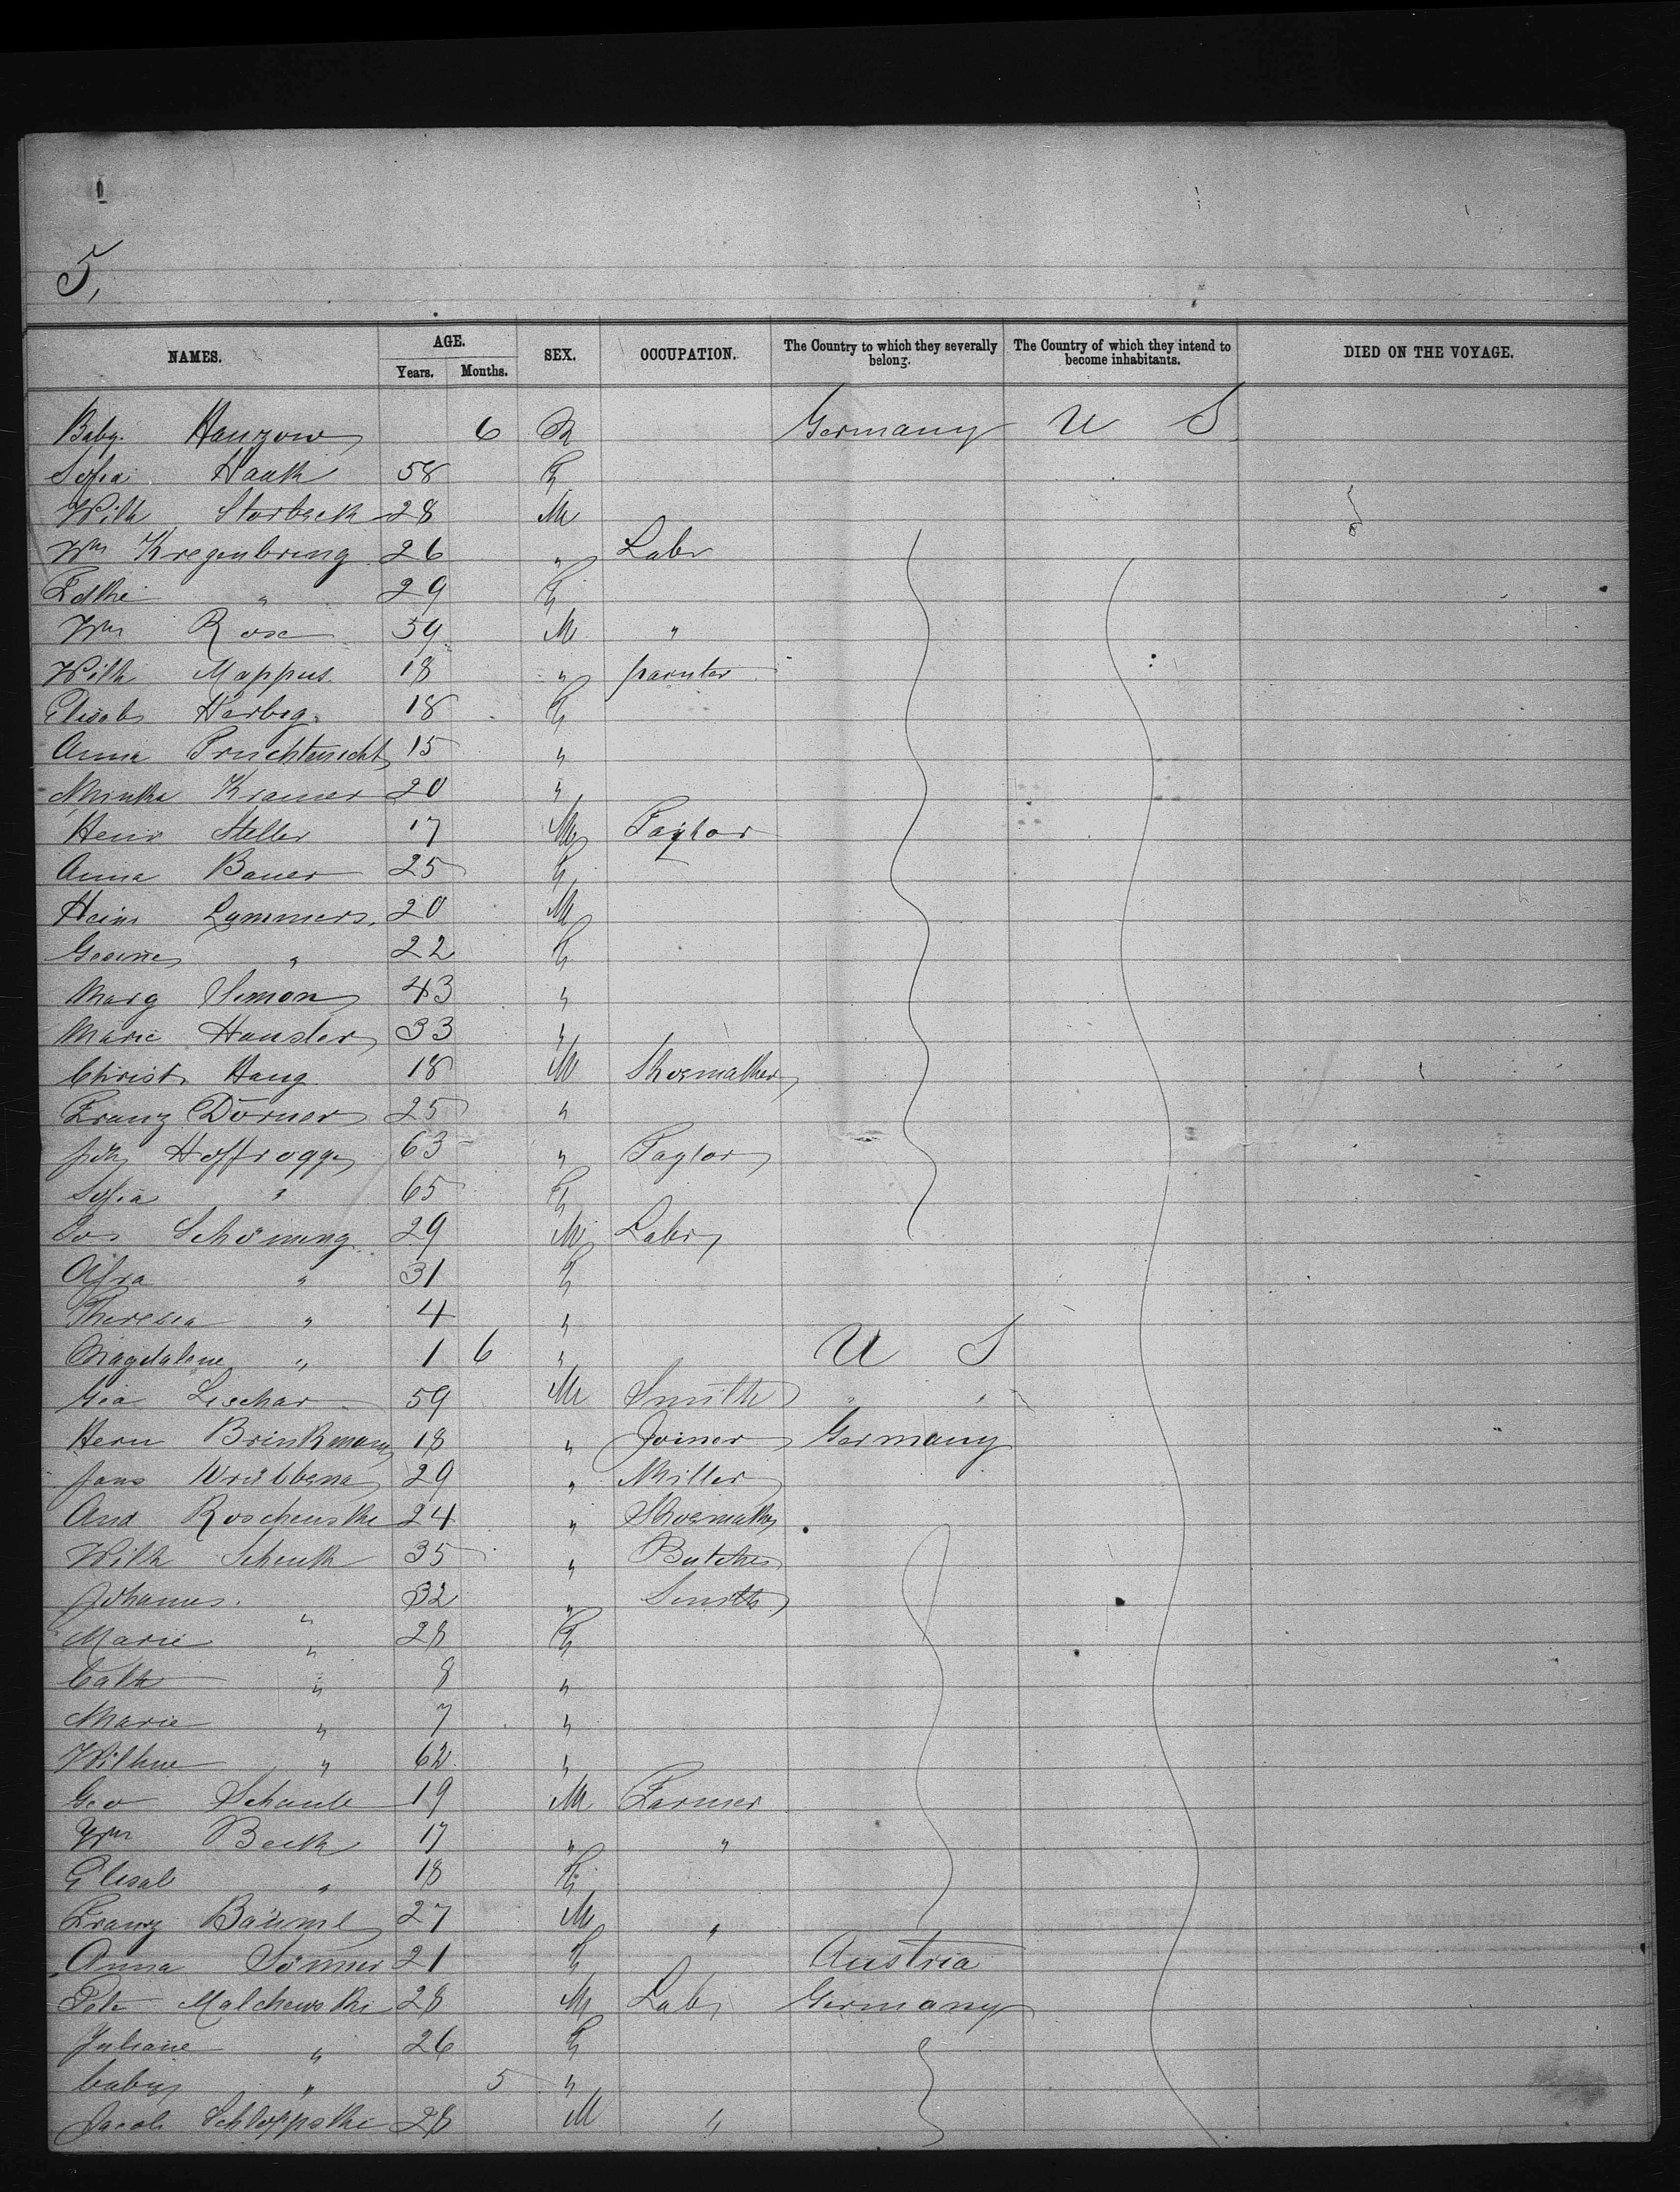 5,
NAMES. AGE. SEX. OCCUPATION. The Country to which they severally belong. The Country of which they intend to become inhabitants. DIED ON THE VOYAGE.
Years. Months.
Baby. Hanzow 6 M Germany U S
Sofia Haak 58 F
Wilh Storbeck 28 M
Wm Kregenbring 26 " Labr
" 29 F
Wm Rose 59 M "
Wilh Mappus 18 " painter
Elisab Herbig 18 F
Anna 15 "
Minka Kramer 20 "
Henr Steller 17 M Taylor
Anna Bauer 25 F
Heinr Lammers. 20 M
Gesine " 22 F
Marg Simon 43 "
Marie Hansler 33 "
Christ Haug 18 M Shoemaker
Franz Dörner 25 "
Joh Hoffrogge 63 " Taylor
Sofia " 65 F
Jos Schöning 29 M Labr
Afra " 31 F
Theresia " 4 "
Magdalene " 1 6 " U S
Lischar 59 M Smith " "
Herm Brinkmann 18 " Joiner Germany
Jans 29 " Miller
And Roschenske 24 " Shoemaker
Wilh Schenk 35 " Butcher
Johannes. " 32 " Smith
Marie " 28 F
Cath " 8 "
Marie " 7 "
Wilhne " 62 "
Geo Schaub 19 M Farmer
Wm Beck 17 " "
Elisab " 18 F
Franz Bäuml 27 M "
Anna 21 F Austria
Pete Malchewski 28 M Labr Germany
Juliane " 26 F
baby " 5 "
Jacob Schloppske 28 M "